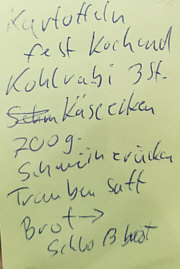 Kartoffeln
fest Kochend
Kohlrabi 3 St.
Käseecken
700g.
Schweinerücken
Traubensaft
Brot →
Schloßbrot